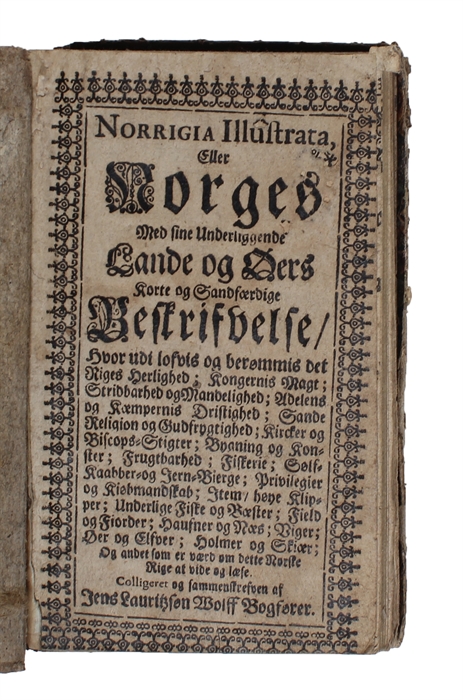 NORRIGIA Illustrata,
Eller
Norges
Med sine Underliggende
Lande og Øers
Korte og Sandfærdige
Beskrifvelse/
Hvor udi lofvis og berømmis det
Riges Herlighed; Kongernis Magt;
Stridbarhed og Mandelighed; Adelens
og Kæmpernis Dristighed; Sande
Religion og Gudfrygtighed; Kircker og
Biscops-Stigter; Byaning og Kon-
ster; Frugtbarhed; Fiskerie; Sølf-
Kaabber-og Jern-Bierge; Privilegier
og Kiøbmandskab; Item/ høye Klip-
per; Underlige Fiske og Bæster; Field
og Fiorder; Haufner og Næs; Viger;
Øer og Elfver; Holmer og Skiær;
Og andet som er værd om dette Norske
Rige at vide og læse.
Colligeret og sammenskrefven af
Jens Lauritzsøn Wolff Bogfører.